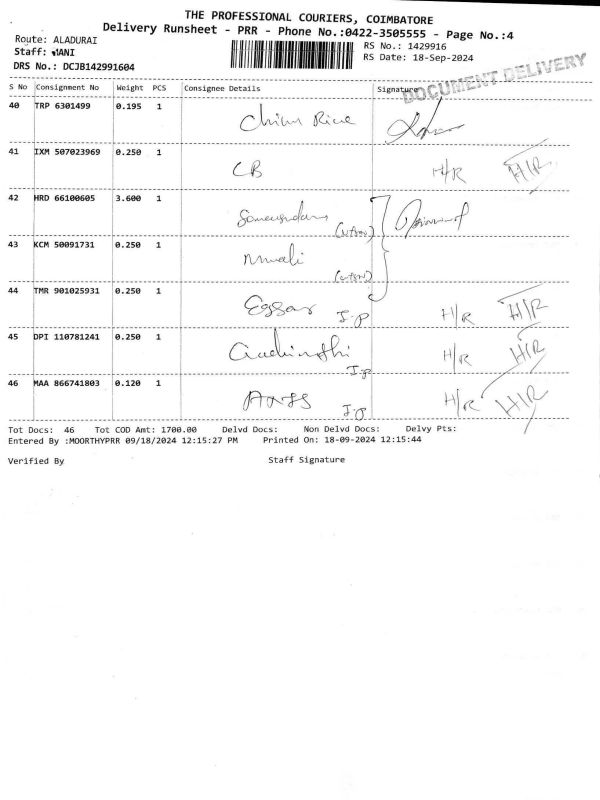 THE PROFESSIONAL COURIERS, COIMBATORE
Delivery Runsheet - PRR - Phone No.:0422-3505555 - Page No.:4
Route: ALADURAI
RS No.: 1429916
Staff: MANI
RS Date: 18-Sep-2024
DRS No.: DCJB142991604
DOCUMENT DELIVERY
S No Consignment No Weight PCS Consignee Details Signature
40 TRP 6301499 0.195 1
41 IXM 507023969 0.250 1 CB H/R H/R
42 HRD 66100605 3.600 1
43 KCM 50091731 0.250 1
44 TMR 901025931 0.250 1 Essar J.P H/R H/R
45 DPI 110781241 0.250 1 J.P H/R H/R
46 MAA 866741803 0.120 1 H/R H/R
Tot Docs: 46 Tot COD Amt: 1700.00 Delvd Docs: Non Delvd Docs: Delvy Pts:
Entered By :MOORTHYPRR 09/18/2024 12:15:27 PM Printed On: 18-09-2024 12:15:44
Verified By Staff Signature